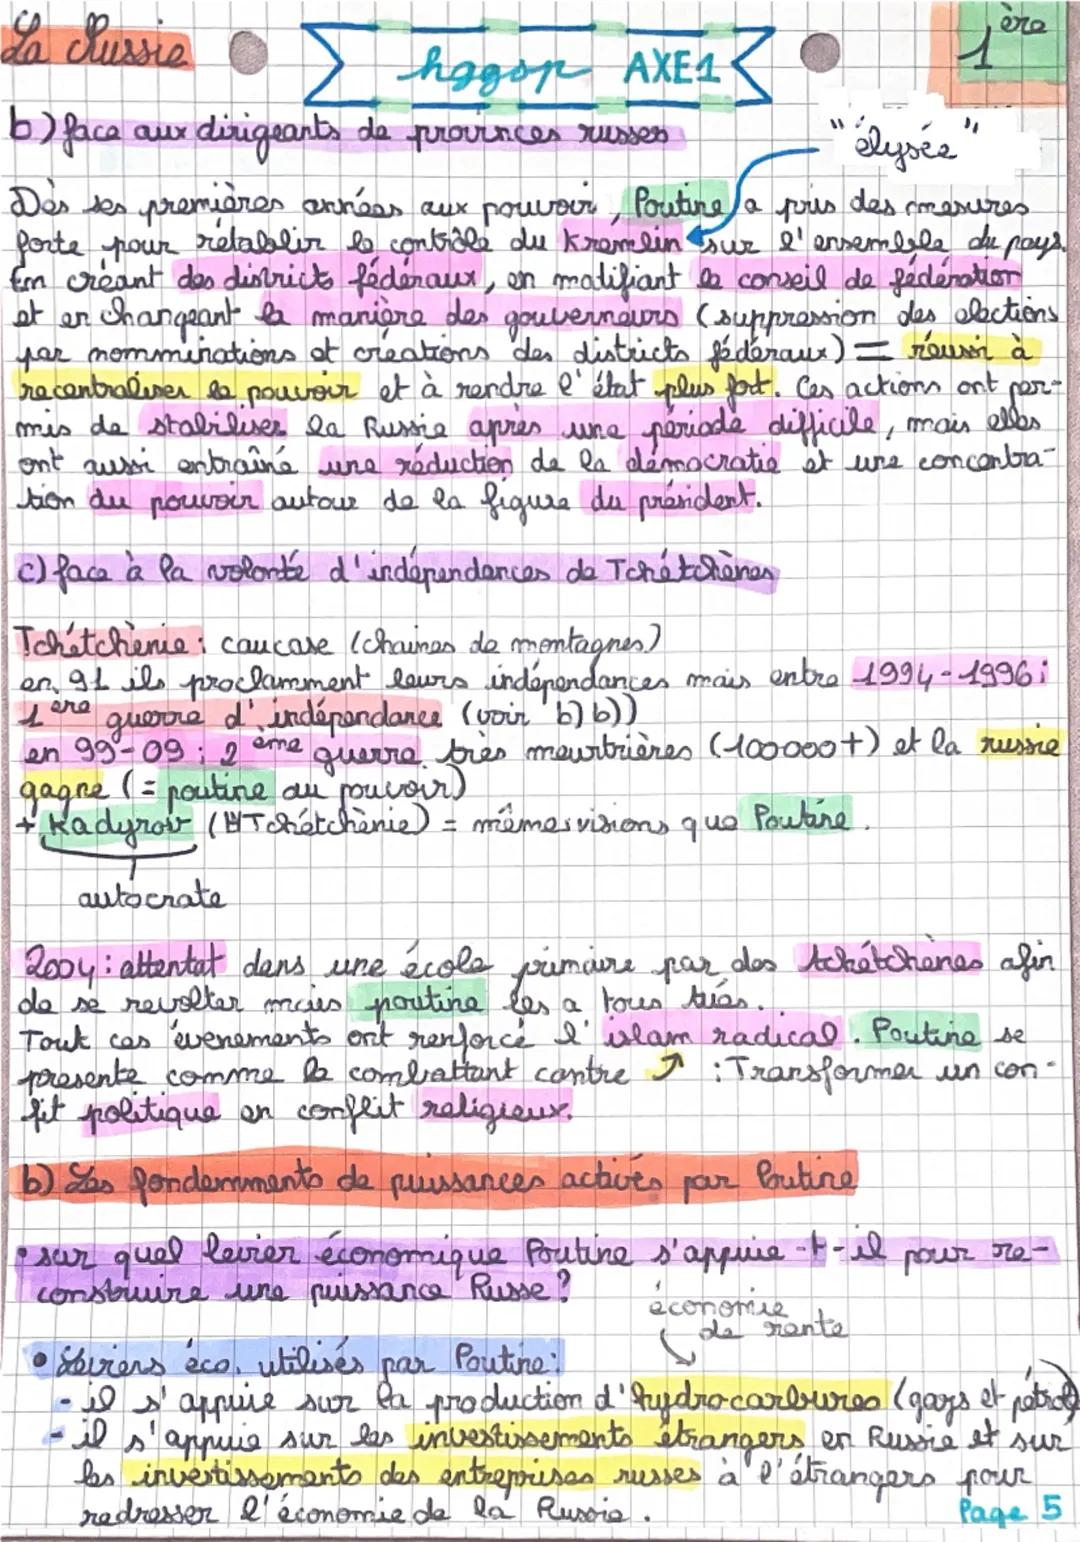 La Russie
hggsp AXE1
1ère
b) face aux dirigeants de provinces russes
"élysée"
Dès ses premières années aux pouvoir, Poutine a pris des mesures
forte pour rétablir le contrôle du Kremlin sur l'ensemble du pays.
En créant des districts fédéraux, en modifiant le conseil de fédération
et en changeant la manière des gouverneurs (suppression des elections
par nomminations et créations des districts fédéraux) = réussir à
recentraliser le pouvoir et à rendre l'état plus fort. Ces actions ont per-
mis de stabiliser la Russie après une période difficile, mais elles
ont aussi entraîné une réduction de la démocratie et une concentra-
tion du pouvoir autour de la figure du président.
c) face à la volonté d'indépendances de Tchétchènes
Tchétchènie : caucase (chaines de montagnes)
en 91 ils proclamment leurs indépendances mais entre 1994-1996 :
1ère guerre d'indépendance (voir b) b))
en 99-09 : 2ème guerre très meurtrières (100000+) et la russie
gagne (= poutine au pouvoir)
+ Kadyrov (Tchétchènie) = mêmes visions que Poutine.
autocrate
2004 : attentat dans une école primaire par des tchétchènes afin
de se revolter mais poutine les a tous tués.
Tout ces évenements ont renforcé l'islam radical. Poutine se
presente comme le combattant contre ↗ : Transformer un con-
fit politique en conflit religieux.
b) Les fondemments de puissances activés par Poutine
• sur quel levier économique Poutine s'appuie-t-il pour re-
construire une puissance Russe ?
économie
de rente
• Leviers éco. utilisés par Poutine :
- il s'appuie sur la production d'hydrocarbures (gazs et pétrole)
- il s'appuie sur les investissements étrangers en Russie et sur
les investissements des entreprises russes à l'étrangers pour
redresser l'économie de la Russie.
Page 5